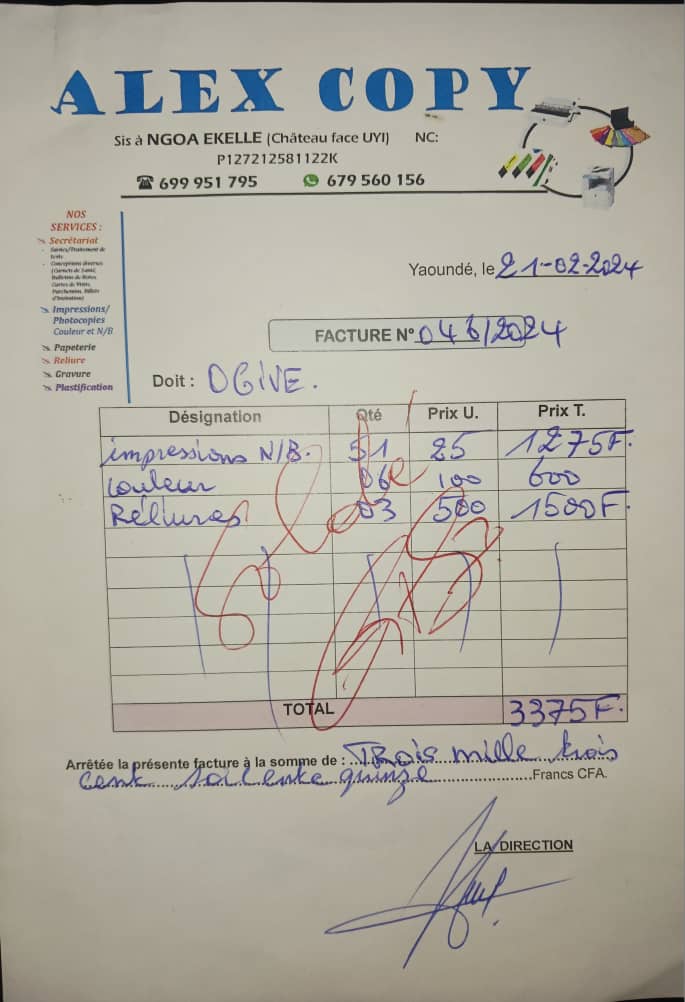 ALEX COPY
Sis à NGOA EKELLE (Château face UYI) NC:
P127212581122K
☎ 699 951 795 679 560 156
NOS
SERVICES :
Secrétariat
- Saisies/Traitement de
texte
- Conceptions diverses
(Carnets de Santé,
Bulletins de Notes,
Cartes de Visite,
Parchemins, Billets
d'Invitations)
Impressions/
Photocopies
Couleur et N/B
Papeterie
Reliure
Gravure
Plastification
Yaoundé, le 21-02-2024
FACTURE N° 046/2024
Doit : OGIVE.
Désignation Qté Prix U. Prix T.
impressions N/B. 51 25 1275F.
Couleur 06 100 600
Réliures 03 500 1500F.
Soldé
TOTAL 3375F.
Arrêtée la présente facture à la somme de : Trois mille trois
cent soixente quinze Francs CFA.
LA DIRECTION